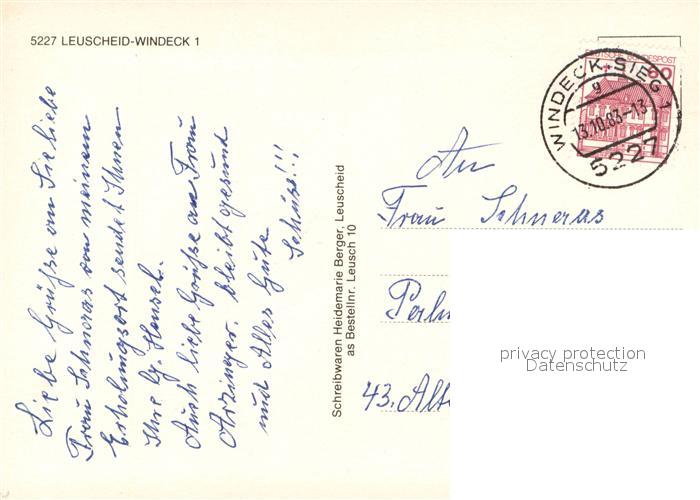 5227 LEUSCHEID-WINDECK 1
Liebe Grüße an Sie liebe
Frau Schneras von meinem
Erholungsort sendet Ihnen
Ihre G. Hensel.
Auch liebe Grüße an Frau
Arzinger. bleibt gesund
und Alles Gute
Schüß!!!
Schreibwaren Heidemarie Berger, Leuscheid
as Bestellnr. Leusch 10
DEUTSCHE BUNDESPOST
60
WINDECK, SIEG 1
g
13.10.83-13
5227
An
Frau Schneras
43. Alt
privacy protection
Datenschutz